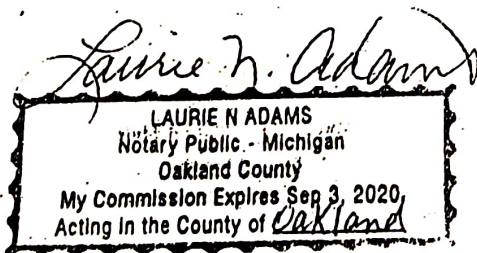 Laurie N. Adams
LAURIE N ADAMS
Notary Public - Michigan
Oakland County
My Commission Expires Sep 3, 2020
Acting in the County of Oakland